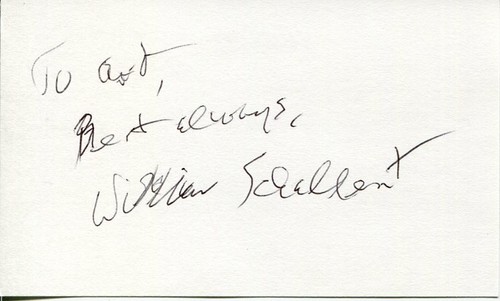 To Art,
Best always,
William Schallert